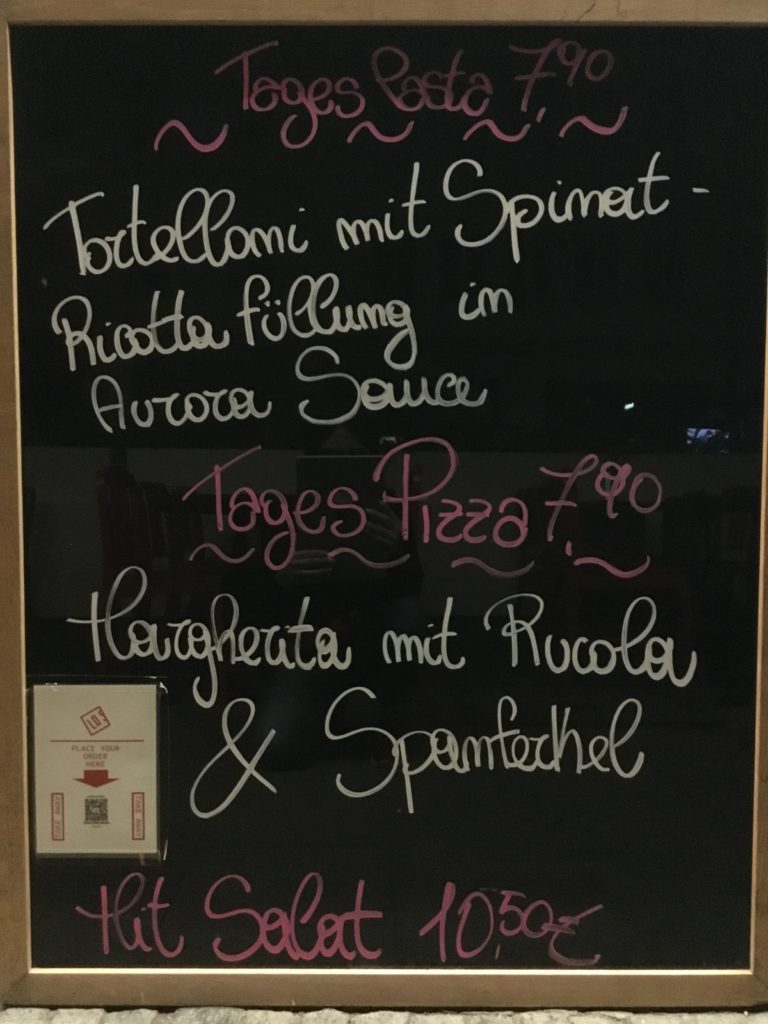 Tages Pasta 7,90
Tortelloni mit Spinat-
Ricotta füllung in
Aurora Sauce
Tages Pizza 7,90
Margherita mit Rucola
& Spanferkel
PLACE YOUR
ORDER
HERE
TAKE AWAY
TAKE AWAY
Hit Salat 10,50€